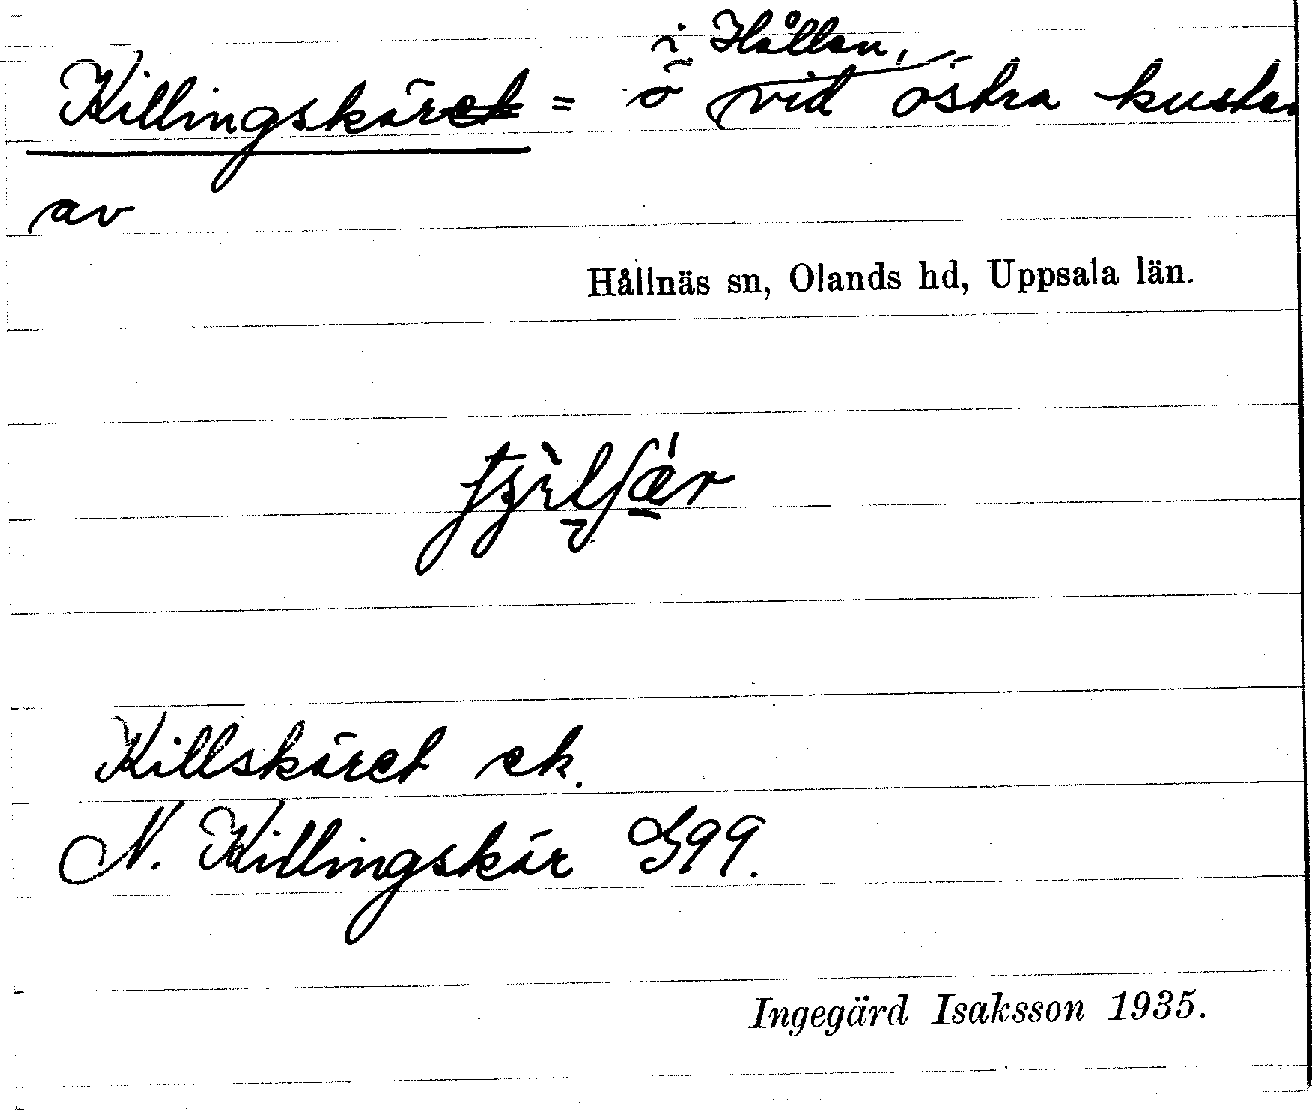 i Hållen,
Killingskäret = ö vid östra kusten
av
Hållnäs sn, Olands hd, Uppsala län.
Killskäret ek.
N. Killingskär G99.
Ingegärd Isaksson 1935.